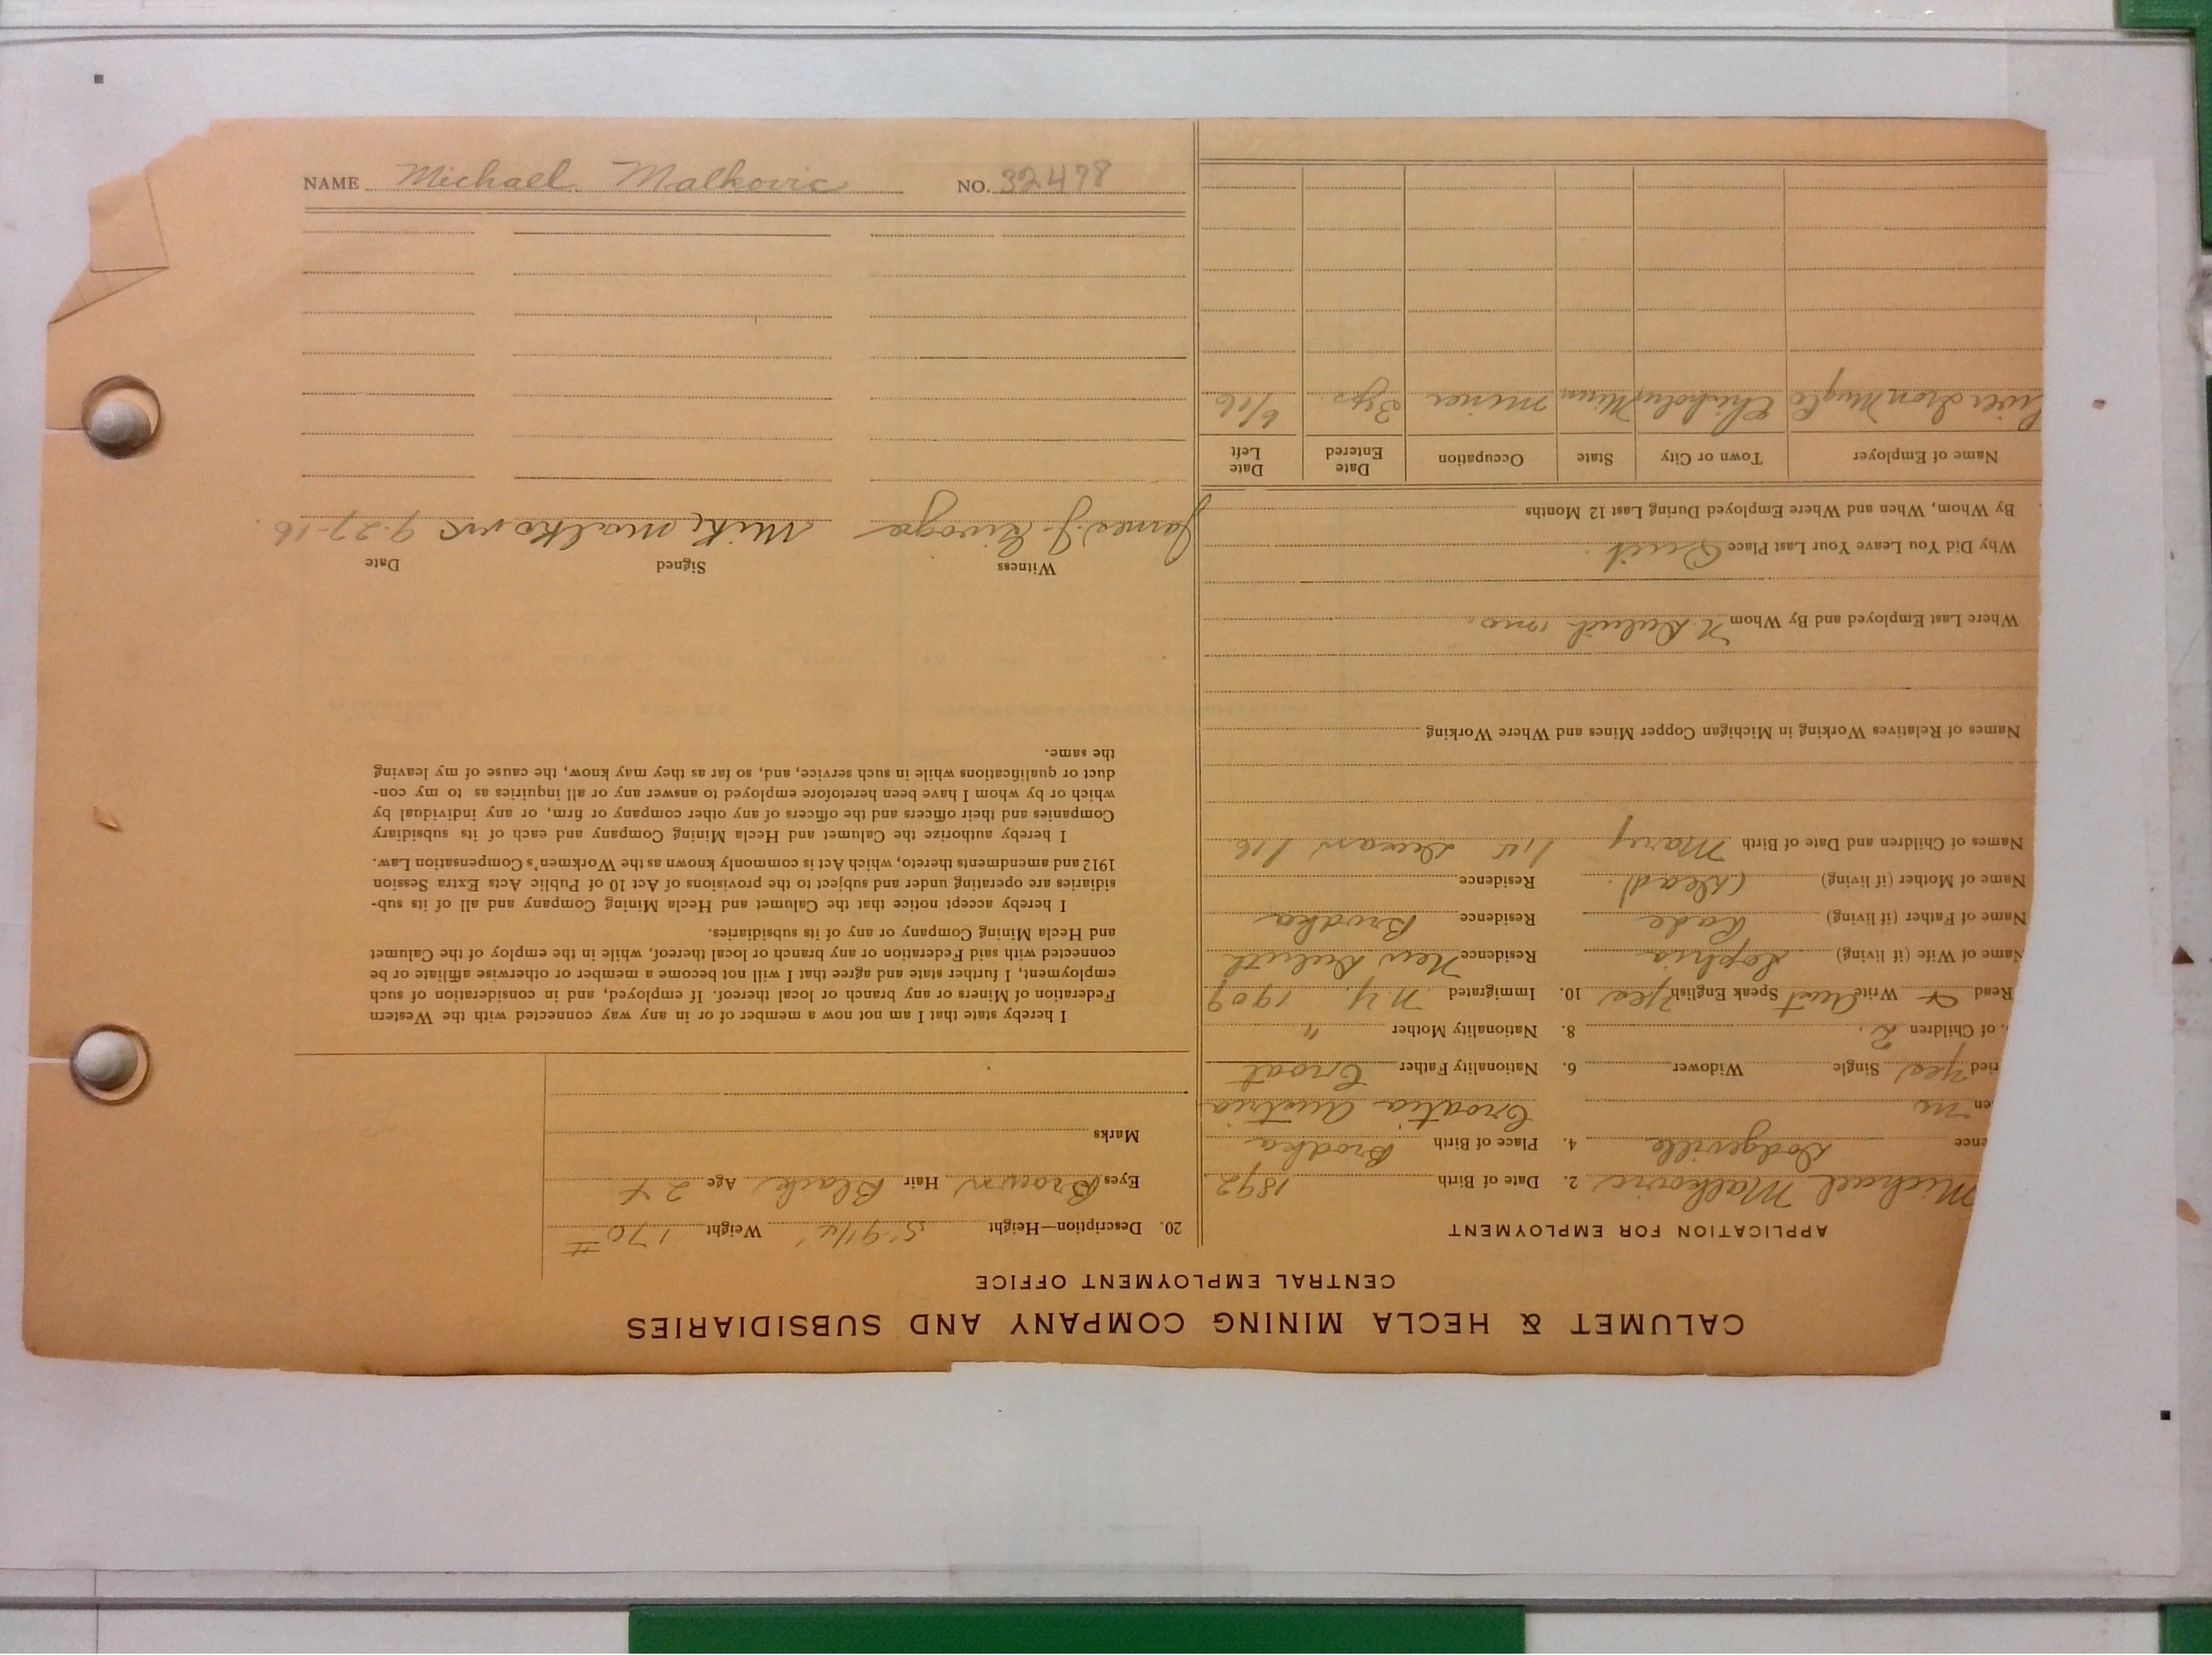 CALUMET & HECLA MINING COMPANY AND SUBSIDIARIES
CENTRAL EMPLOYMENT OFFICE
APPLICATION FOR EMPLOYMENT
Michael Malkovic 2. Date of Birth 1892
ence Dodgeville 4. Place of Birth Brodka
en no Croatia Austria
ried yes Single Widower 6. Nationality Father Croat
. of Children 2. 8. Nationality Mother "
Read & Write Aust Speak English yes 10. Immigrated N.Y. 1909
Name of Wife (if living) Sophia Residence New Duluth
Name of Father (if living) Rade Residence Brodka
Name of Mother (if living) (dead). Residence
Names of Children and Date of Birth Mary
Names of Relatives Working in Michigan Copper Mines and Where Working
Where Last Employed and By Whom N. Duluth
Why Did You Leave Your Last Place Quit.
By Whom, When and Where Employed During Last 12 Months
Name of Employer Town or City State Occupation Date Entered Date Left
Iron Chisholm Minn miner 3 yrs. 6/16
20. Description—Height 5' 9 1/4" Weight 170 #
Eyes Brown Hair Black Age 24
Marks
I hereby state that I am not now a member of or in any way connected with the Western
Federation of Miners or any branch or local thereof. If employed, and in consideration of such
employment, I further state and agree that I will not become a member or otherwise affiliate or be
connected with said Federation or any branch or local thereof, while in the employ of the Calumet
and Hecla Mining Company or any of its subsidiaries.
I hereby accept notice that the Calumet and Hecla Mining Company and all of its sub-
sidiaries are operating under and subject to the provisions of Act 10 of Public Acts Extra Session
1912 and amendments thereto, which Act is commonly known as the Workmen's Compensation Law.
I hereby authorize the Calumet and Hecla Mining Company and each of its subsidiary
Companies and their officers and the officers of any other company or firm, or any individual by
which or by whom I have been heretofore employed to answer any or all inquiries as to my con-
duct or qualifications while in such service, and, so far as they may know, the cause of my leaving
the same.
Witness Signed Date
James J. Mike Malkovic 9-27-16.
NAME Michael Malkovic NO. 32478